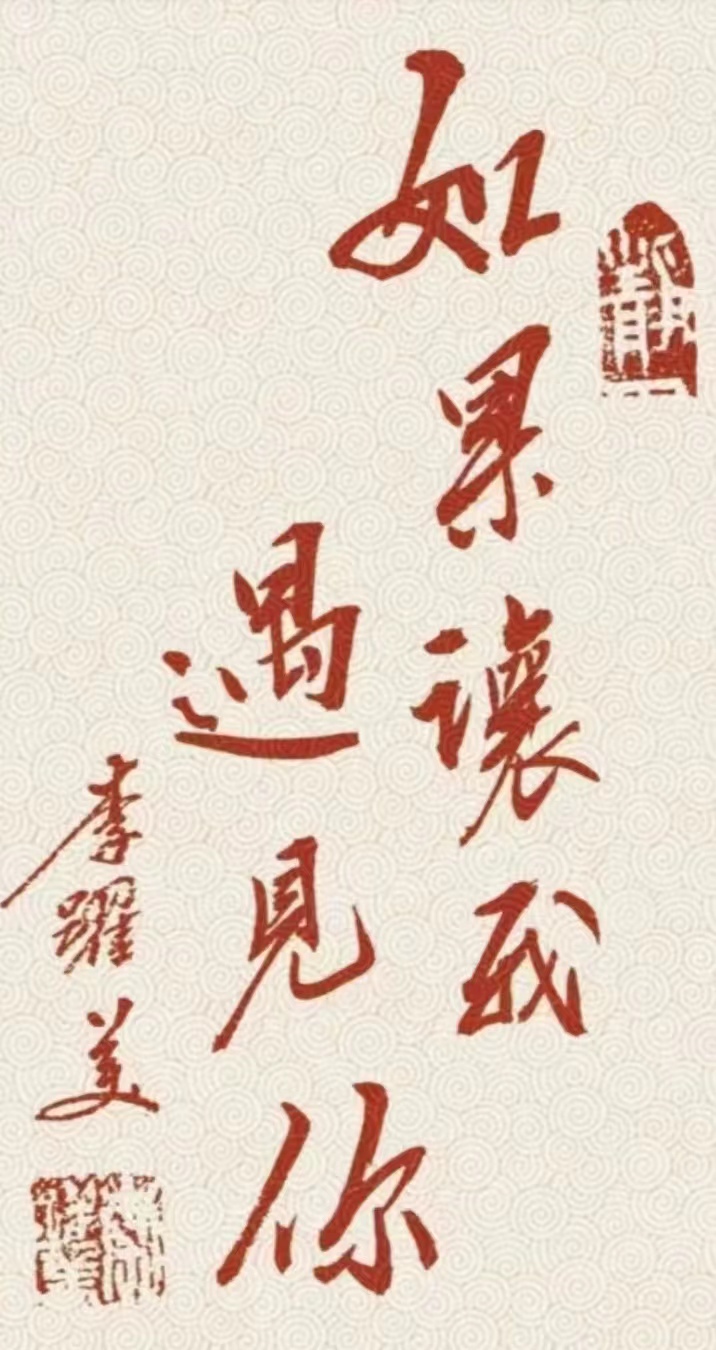 如果讓我
遇見你
李躍美
靜